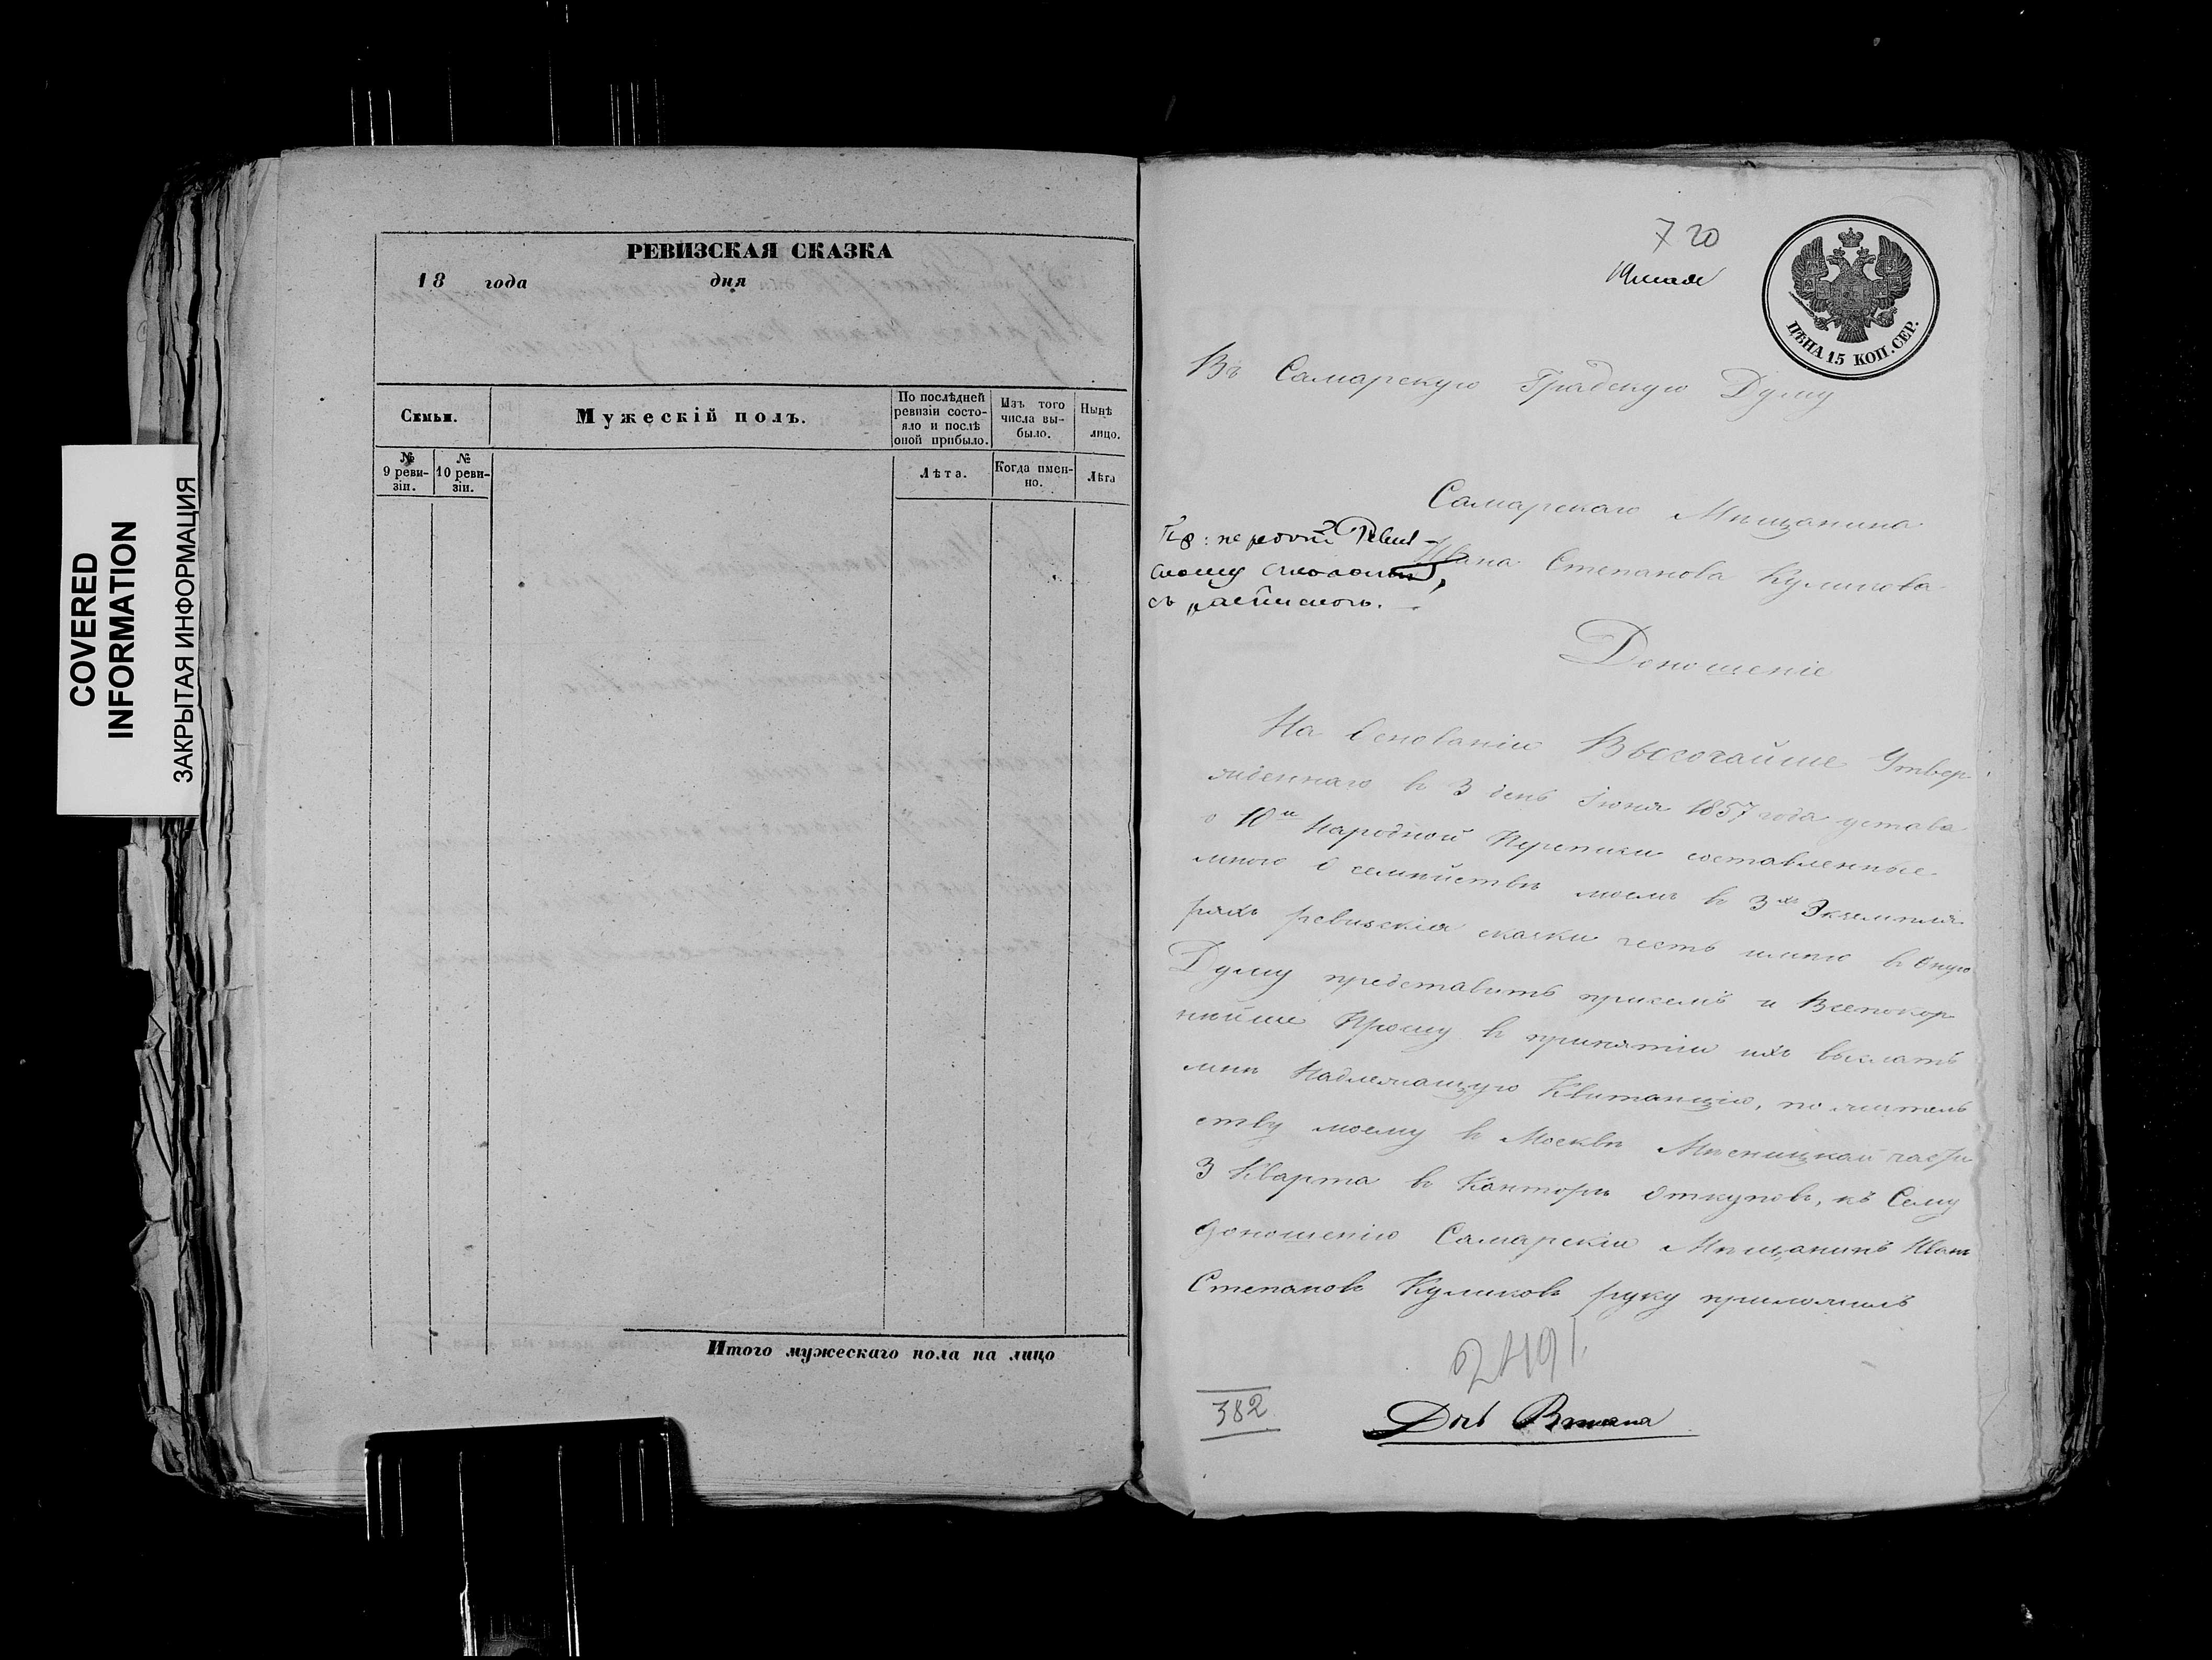 COVERED
INFORMATION
ЗАКРЫТАЯ ИНФОРМАЦИЯ
РЕВИЗСКАЯ СКАЗКА
18 года дня
Семьи.
Мужескій полъ.
По послѣдней
ревизіи состо-
яло и послѣ
оной прибыло.
Изъ того
числа вы-
было.
Нынѣ
лицо.
№
9 реви-
зіи.
№
10 реви-
зіи.
Лѣта.
Когда имен-
но.
Лѣта
Итого мужескаго пола на лицо
720
ЦѢНА 15 КОП. СЕР.
Въ Самарскую Градскую Думу
Самарскаго Мѣщанина
Ивана Степанова Куликова
Доношеніе
На Основаніи Высочайше Утвер
жденнаго в 3 день Іюня 1857 года устава
о 10й Народной Переписи составленные
мною о семействѣ моемъ в 3хъ Экземпля
рахъ ревизскія сказки честь имѣю в оную
Думу представить присемъ и Всепокор
нѣйше Прошу в принятіи ихъ выслать
мнѣ Надлежащую Квитанцію, по житель
ству моему в Москвѣ Мясницкой части
3 Кварта в Конторѣ Откуповъ, къ Сему
доношенію Самарскій Мѣщанинъ Иванъ
Степановъ Куликовъ руку приложилъ
382